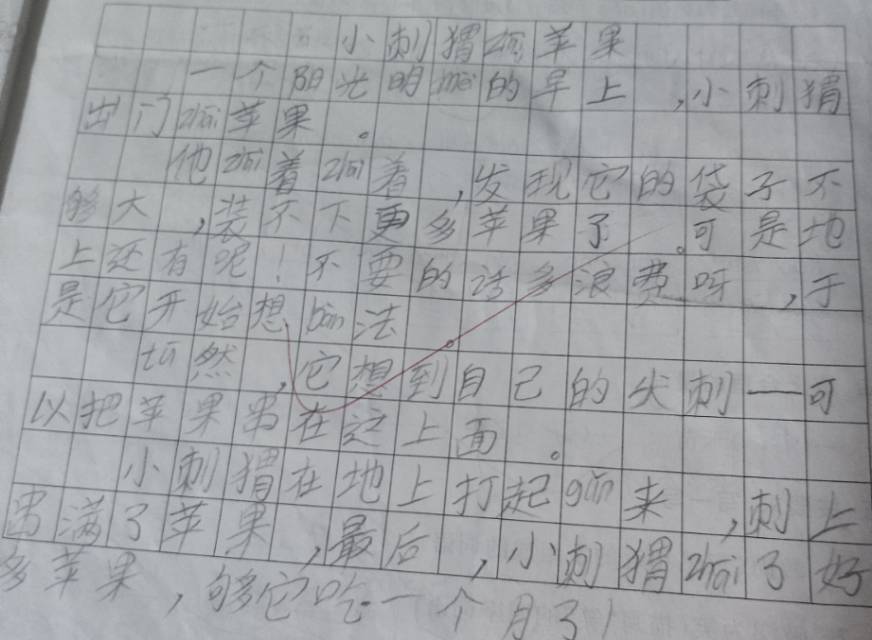 小刺猬zhāi苹果
一个阳光明mèi的早上,小刺猬
出门zhāi苹果。
他zhāi着zhāi着,发现它的袋子不
够大,装不下更多苹果了。可是地
上还有呢!不要的话多浪费呀,于
是它开始想bàn法。
tū然,它想到自己的尖刺一可
以把苹果串在这上面。
小刺猬在地上打起gǔn来,刺上
串满了苹果,最后,小刺猬zhāi了好
多苹果,够它吃一个月了!